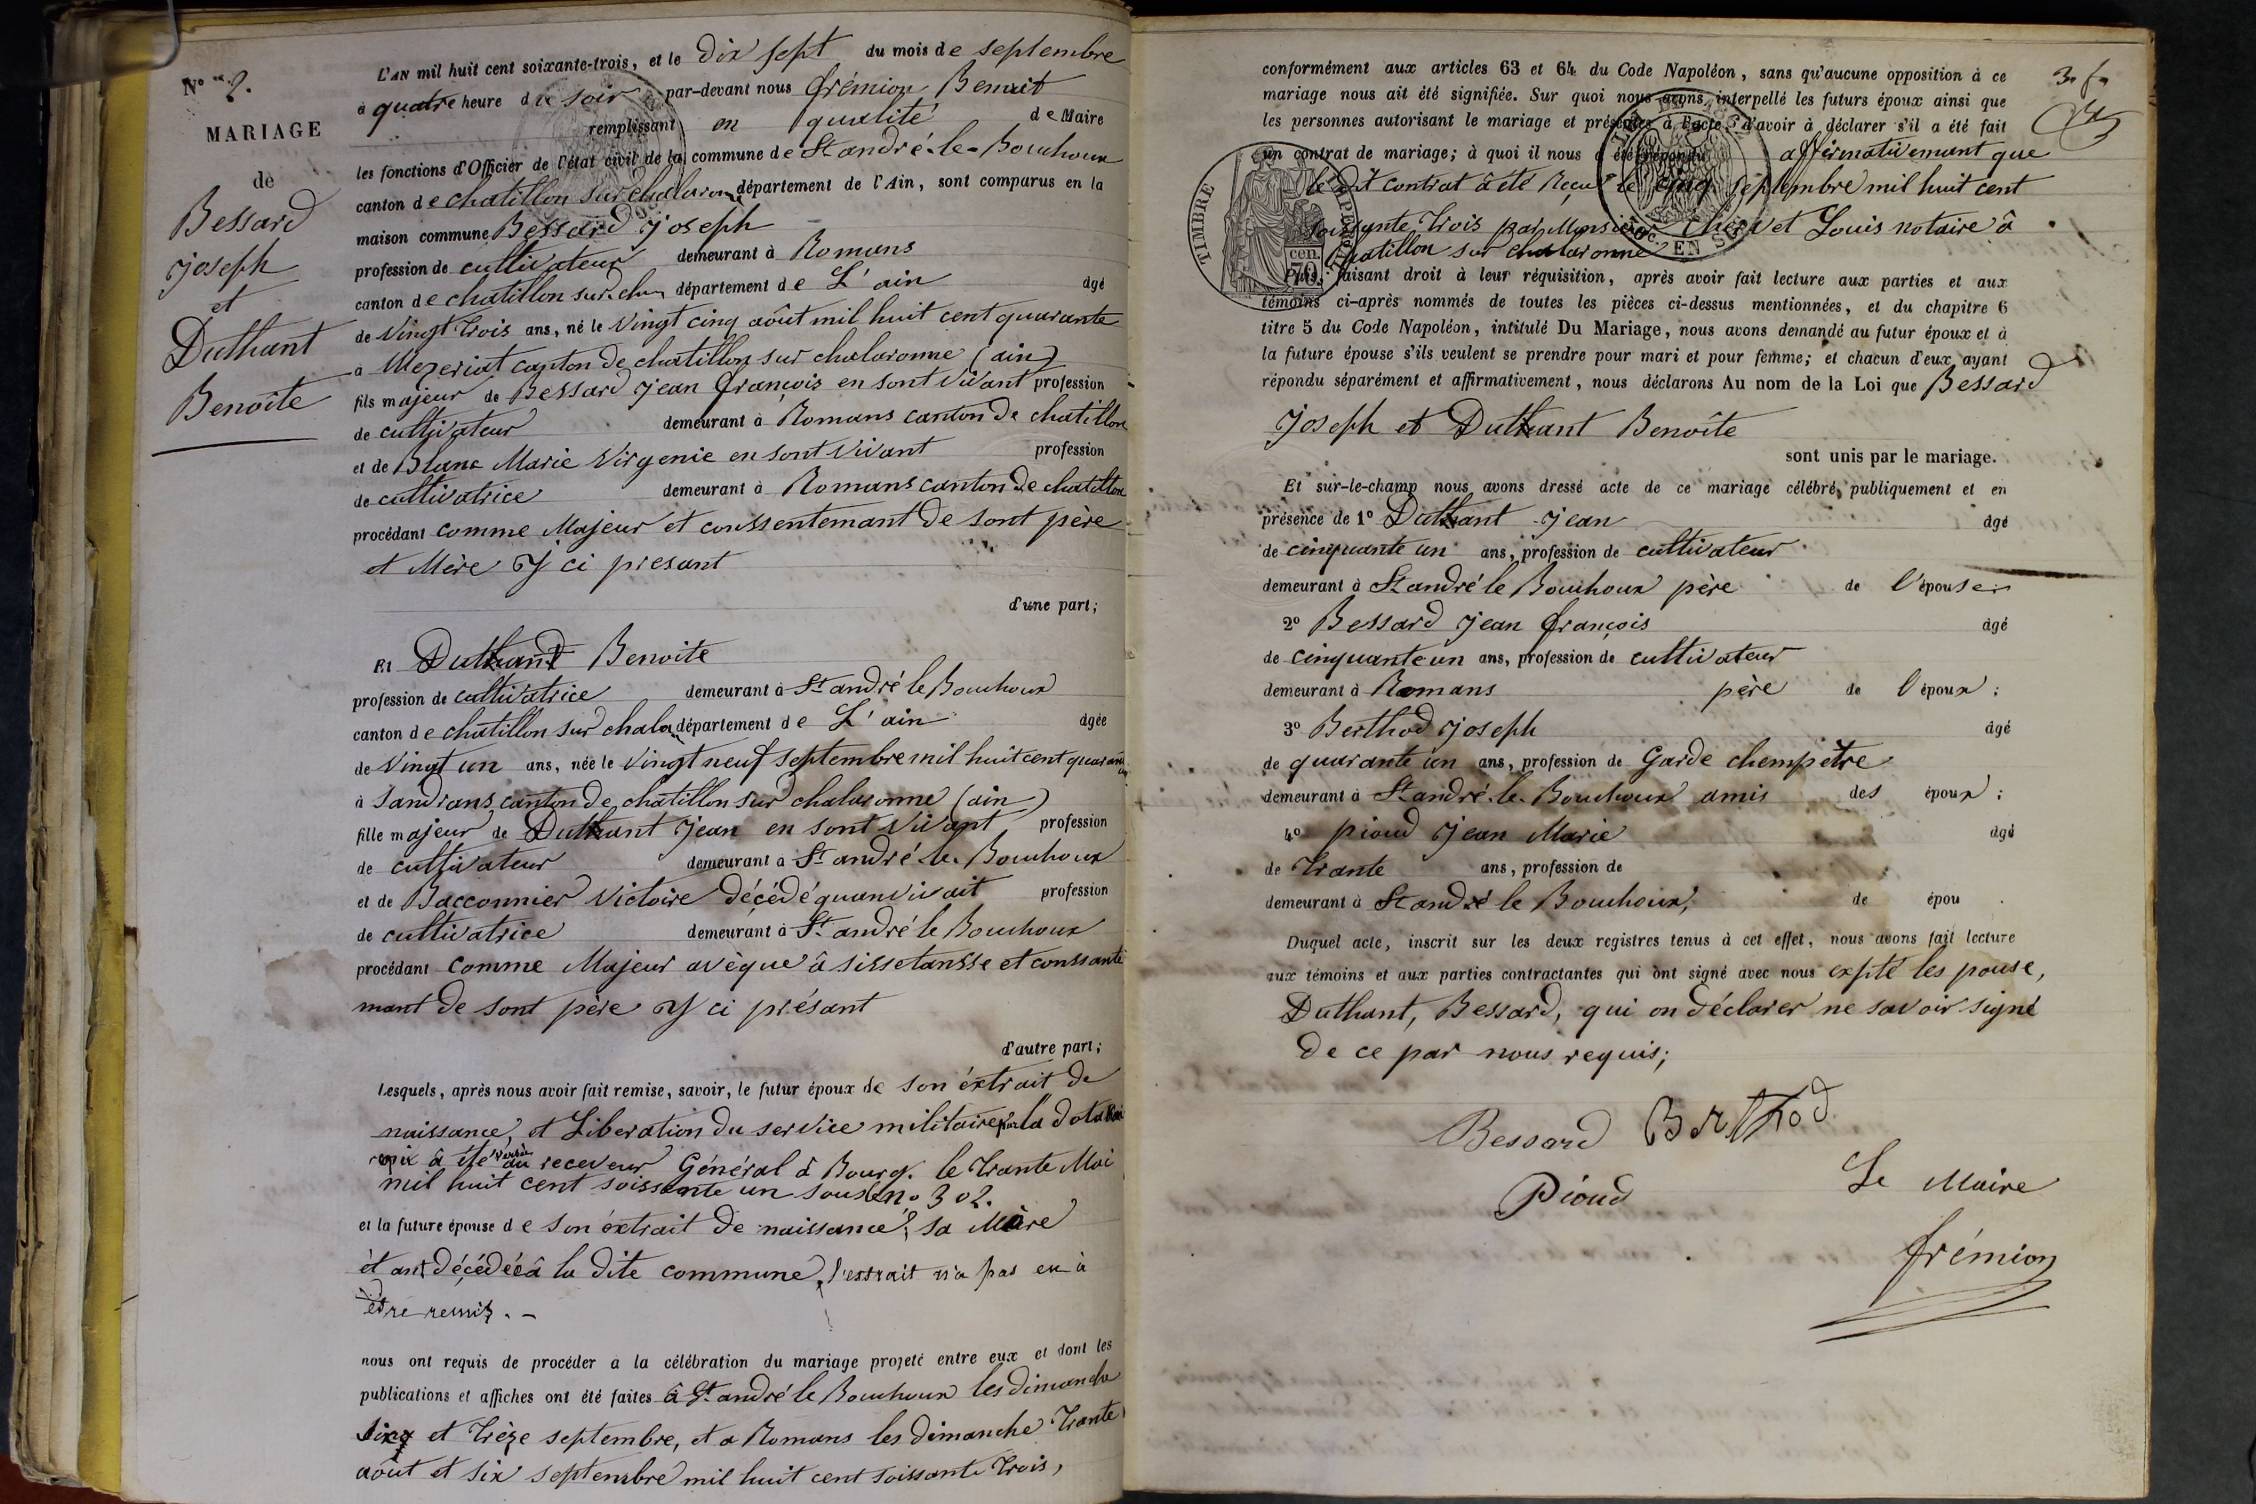 N° 2.
MARIAGE
de
Bessard
joseph
et
Duthant
Benoîte
L'AN mil huit cent soixante-trois, et le dix sept du mois de septembre
à quatre heure du soir par-devant nous frémion Benoit
remplissant en qualité de Maire
les fonctions d'Officier de l'état civil de la commune de St andré-le-Bouchoux
canton de chatillon sur chalaronne département de l'Ain, sont comparus en la
maison commune Bessard joseph
profession de cultivateur demeurant à Romans
canton de chatillon sur chn département de L'ain âgé
de vingt trois ans, né le vingt cinq aôut mil huit cent quarante
à Mezeriat canton de chatillon sur chalaronne (ain)
fils majeur de Bessard jean françois en sont vivant profession
de cultivateur demeurant à Romans canton de chatillon
et de Blanc Marie Virgenie en sont vivant profession
de cultivatrice demeurant à Romans canton de chatillon
procédant comme Majeur et conssentemant de sont père
et Mère Y ci presant
d'une part;
Et Duthant Benoite
profession de cultivatrice demeurant à St andré le Bouchoux
canton de chatillon sur chala département de L'ain âgée
de vingt un ans, née le vingt neuf septembre mil huit cent quarante un
à Sandrans canton de chatillon sur chalaronne (ain)
fille majeur de Duthant jean en sont vivant profession
de cultivateur demeurant à St andré-le-Bouchoux
et de Bacconnier victoire décédé quanvivait profession
de cultivatrice demeurant à St andré le Bouchoux
procédant comme Majeur avèque â sissetansse et conssante
mant de sont père Y ci présant
d'autre part;
Lesquels, après nous avoir fait remise, savoir, le futur époux de son éxtrait de
naissance, et Liberation du service militaire par la dota
à été versé au receveur Général à Bourg. le trante Mai
mil huit cent soissante un sous le no 302.
et la future épouse de son éxtrait de naissance, sa Mère
ètant décédée â la dite commune, l'extrait n'a pas eu à
être remis. -
nous ont requis de procéder à la célébration du mariage projeté entre eux et dont les
publications et affiches ont été faites â St andré le Bouchoux les dimanche
six et trèze septembre, et a Romans les dimanche trante
aôut et six septembre mil huit cent soissante trois,
conformément aux articles 63 et 64 du Code Napoléon, sans qu'aucune opposition à ce
mariage nous ait été signifiée. Sur quoi nous avons interpellé les futurs époux ainsi que
les personnes autorisant le mariage et présentes à l'acte, d'avoir à déclarer s'il a été fait
un contrat de mariage; à quoi il nous a été répondu affirmativemant que
le dit contrat â été reçu le cinq septembre mil huit cent
soissante trois par Monsieur Chervet Louis notaire â
chatillon sur chalaronne
TIMBRE
70 cen.
EN SUS
Puis, faisant droit à leur réquisition, après avoir fait lecture aux parties et aux
témoins ci-après nommés de toutes les pièces ci-dessus mentionnées, et du chapitre 6
titre 5 du Code Napoléon, intitulé Du Mariage, nous avons demandé au futur époux et à
la future épouse s'ils veulent se prendre pour mari et pour femme; et chacun d'eux ayant
répondu séparément et affirmativement, nous déclarons Au nom de la Loi que Bessard
joseph et Duthant Benoîte
sont unis par le mariage.
Et sur-le-champ nous avons dressé acte de ce mariage célébré publiquement et en
présence de 1° Duthant jean âgé
de cinquante un ans, profession de cultivateur
demeurant à St andré le Bouchoux père de l'épouse
2° Bessard jean françois âgé
de cinquante un ans, profession de cultivateur
demeurant à Romans père de l'époux;
3° Berthod joseph âgé
de quarante un ans, profession de Garde chempètre
demeurant à St andré-le-Bouchoux amis des époux;
4° pioud jean Marie âgé
de trante ans, profession de
demeurant à St andré le Bouchoux, de épou .
Duquel acte, inscrit sur les deux registres tenus à cet effet, nous avons fait lecture
aux témoins et aux parties contractantes qui ont signé avec nous expté les pouse,
Duthant, Bessard, qui on déclarer ne savoir signé
de ce par nous requis;
Bessard Berthod
Pioud
Le Maire
frémion